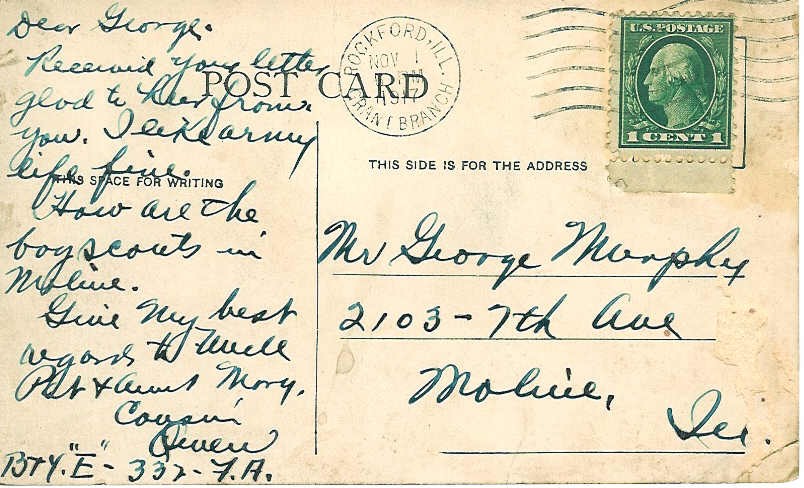 Dear George.
Received your letter
glad to hear from
you. I like army
life fine.
How are the
boy scouts in
Moline.
Give My best
regards to Uncle
Pat & Aunt Mary.
Cousin
Owen
Bty. "E" - 332 - F.A.
POST CARD
THIS SPACE FOR WRITING
ROCKFORD, ILL.
NOV
1917
GRANT BRANCH
U.S. POSTAGE
1 CENT 1
THIS SIDE IS FOR THE ADDRESS
Mr George Murphy
2103 - 7th Ave
Moline,
Ill.